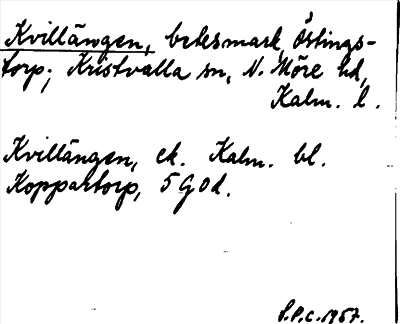 Kvillängen, betesmark, Östings-
torp; Kristvalla sn, N. Möre hd,
Kalm. l.
Kvillängen, ek. Kalm. bl.
Koppartorp, 5 G O d.
S.P.C. 1957.